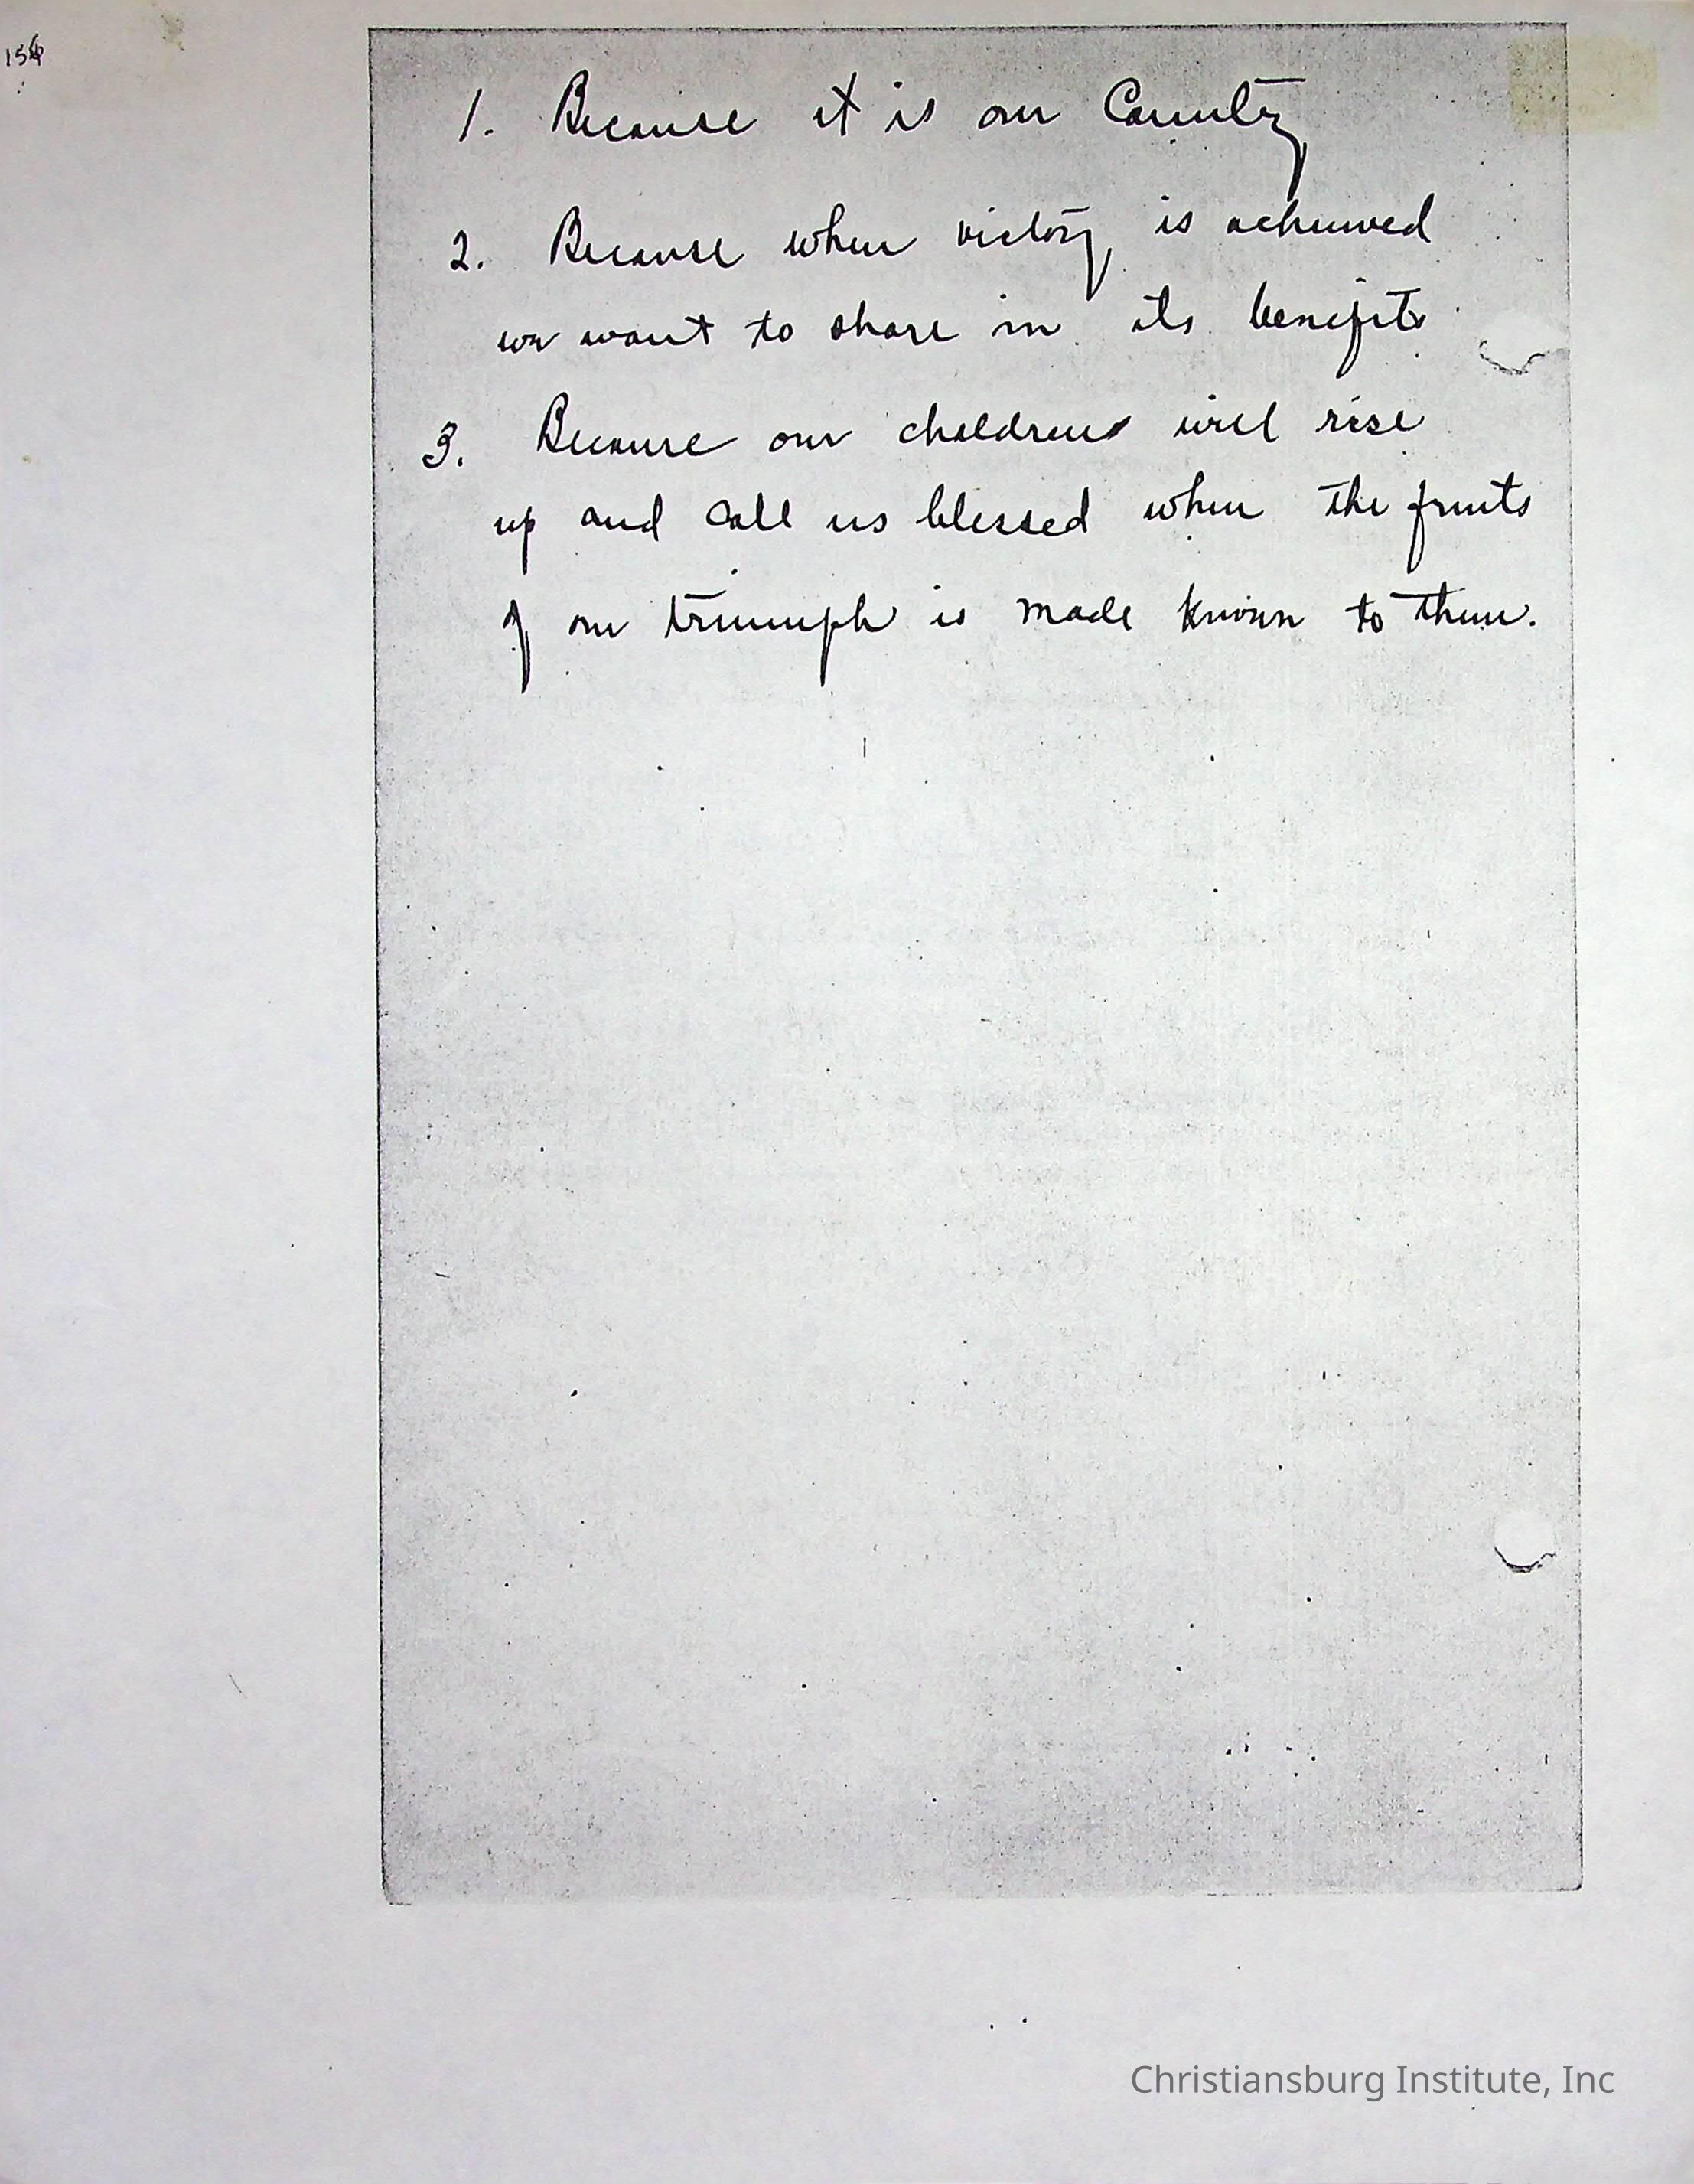 1. Because it is our Country
2. Because when victory is achieved
we want to share in its benefits
3. Because our children will rise
up and call us blessed when the fruits
of our triumph is made known to them.
Christiansburg Institute, Inc